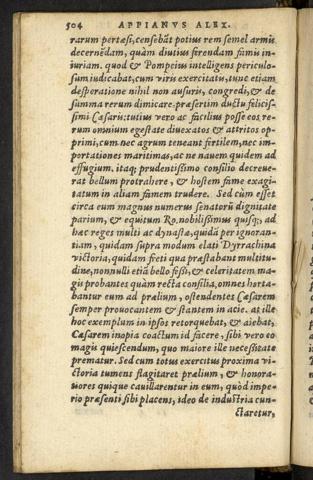 504 APPIANVS ALEX.
rarum pertæsi, censebãt potius rem semel armis
decernẽdam, quàm diutius ferendam famis in-
iuriam. quod & Pompeius intelligens periculo-
sum iudicabat, cum viris exercitatis, tunc etiam
desperatione nihil non ausuris, congredi, & de
summa rerum dimicare. præsertim ductu felicis-
simi Cæsaris: tutius vero ac facilius posse eos re-
rum omnium egestate diuexatos & attritos op-
primi, cum nec agrum teneant fertilem, nec im-
portationes maritimas, ac ne nauem quidem ad
effugium. itaq; prudentissimo consilio decreue-
rat bellum protrahere, & hostem fame exagi-
tatum in aliam famem trudere. Sed cùm esset
circa eum magnus numerus senatorũ dignitate
parium, & equitum Ro. nobilissimus quisq;, ad
hæc reges multi ac dynastæ, quidã per ignoran-
tiam, quidam supra modum elati Dyrrachina
victoria, quidam freti qua præstabant multitu-
dine, nonnulli etiã bello fessi, & celeritatem ma-
gis probantes quàm recta consilia, omnes horta-
bantur eum ad prælium, ostendentes Cæsarem
semper prouocantem & stantem in acie. at ille
hoc exemplum in ipsos retorquebat, & aiebat,
Cæsarem inopia coactum id facere, sibi vero eo
magis quiescendum, quo maiore ille necessitate
prematur. Sed cum totus exercitus proxima vi-
ctoria tumens flagitaret prælium, & honora-
tiores quique cauillarentur in eum, quòd impe-
rio præsenti sibi placens, ideo de industria cun-
ctaretur,